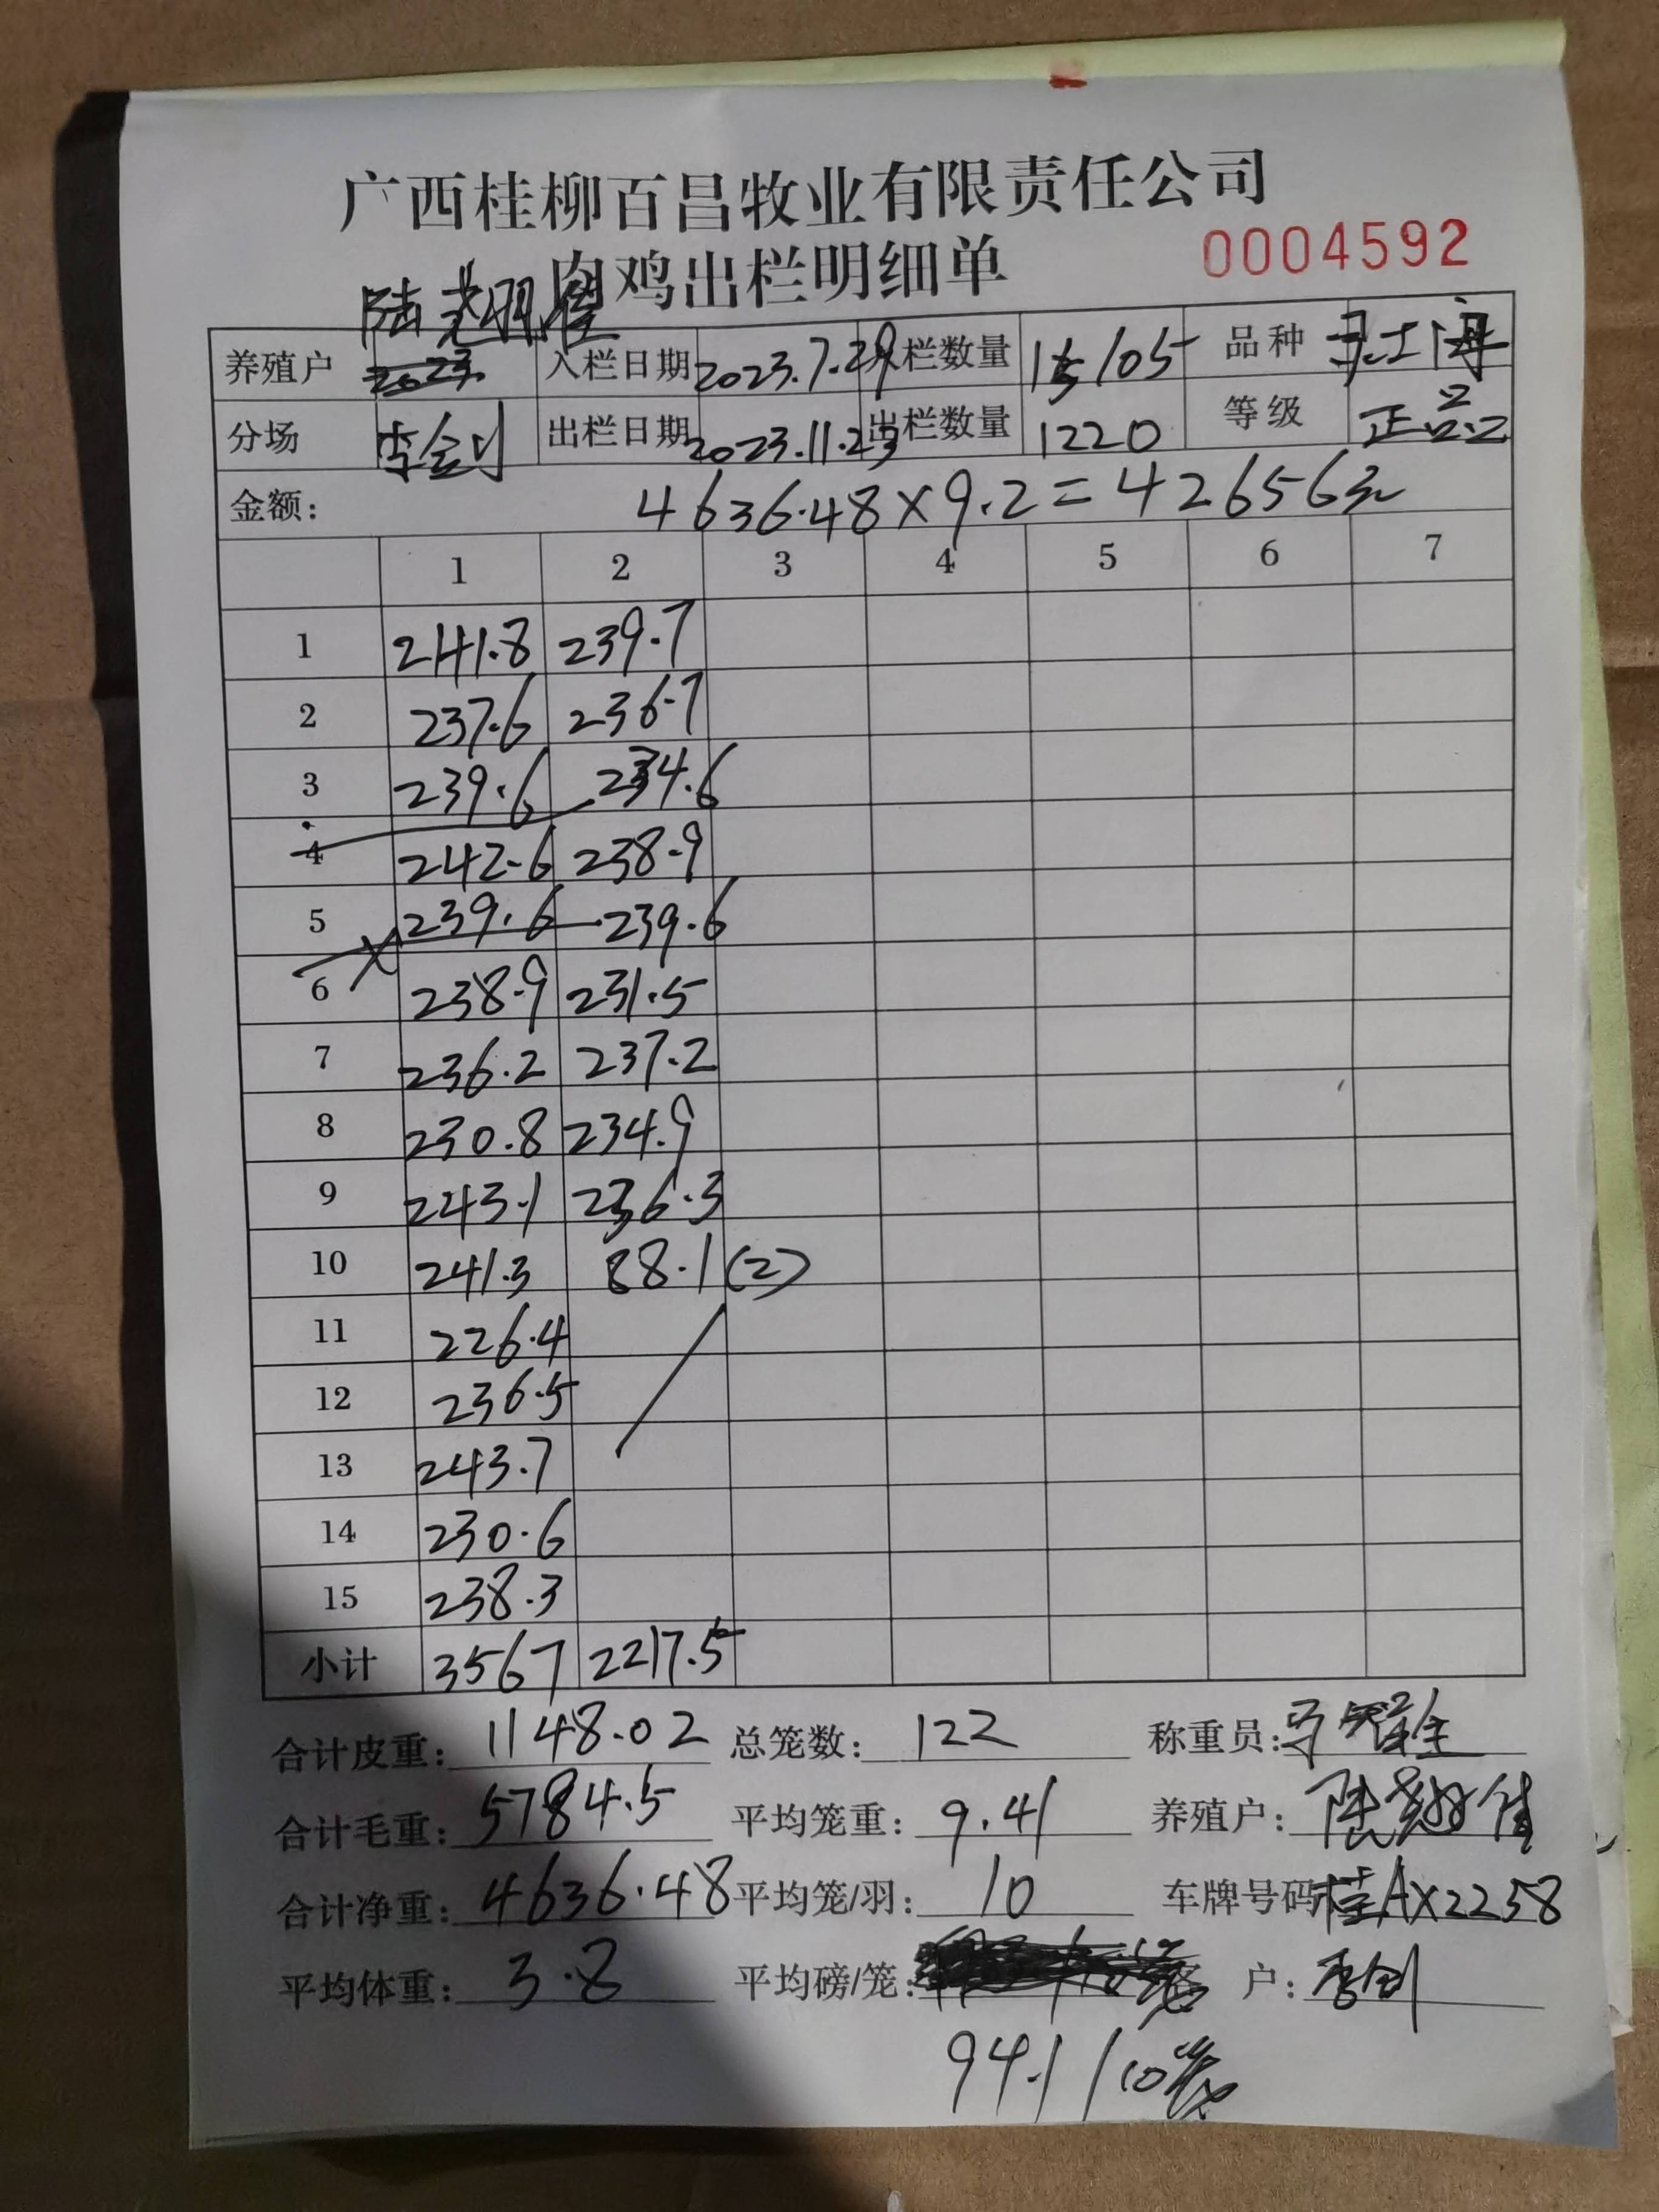 广西桂柳百昌牧业有限责任公司
肉鸡出栏明细单 0004592
养殖户 陆 入栏日期 2023.7.29 入栏数量 105 品种
分场 李剑 出栏日期 2023.11.23 出栏数量 1220 等级 正品
金额: 4636.48×9.2=42656元
1 2 3 4 5 6 7
1 241.8 239.7
2 237.6 236.7
3 239.6 234.6
4 242.6 238.9
5 239.6 239.6
6 238.9 231.5
7 236.2 237.2
8 230.8 234.9
9 243.1 236.3
10 241.3 88.1(2)
11 226.4
12 236.5
13 243.7
14 230.6
15 238.3
小计 3567 2217.5
合计皮重: 1148.02 总笼数: 122 称重员:
合计毛重: 5784.5 平均笼重: 9.41 养殖户: 陆
合计净重: 4636.48 平均笼/羽: 10 车牌号码 桂AX2258
平均体重: 3.8 平均磅/笼: 户: 李剑
94.1/10